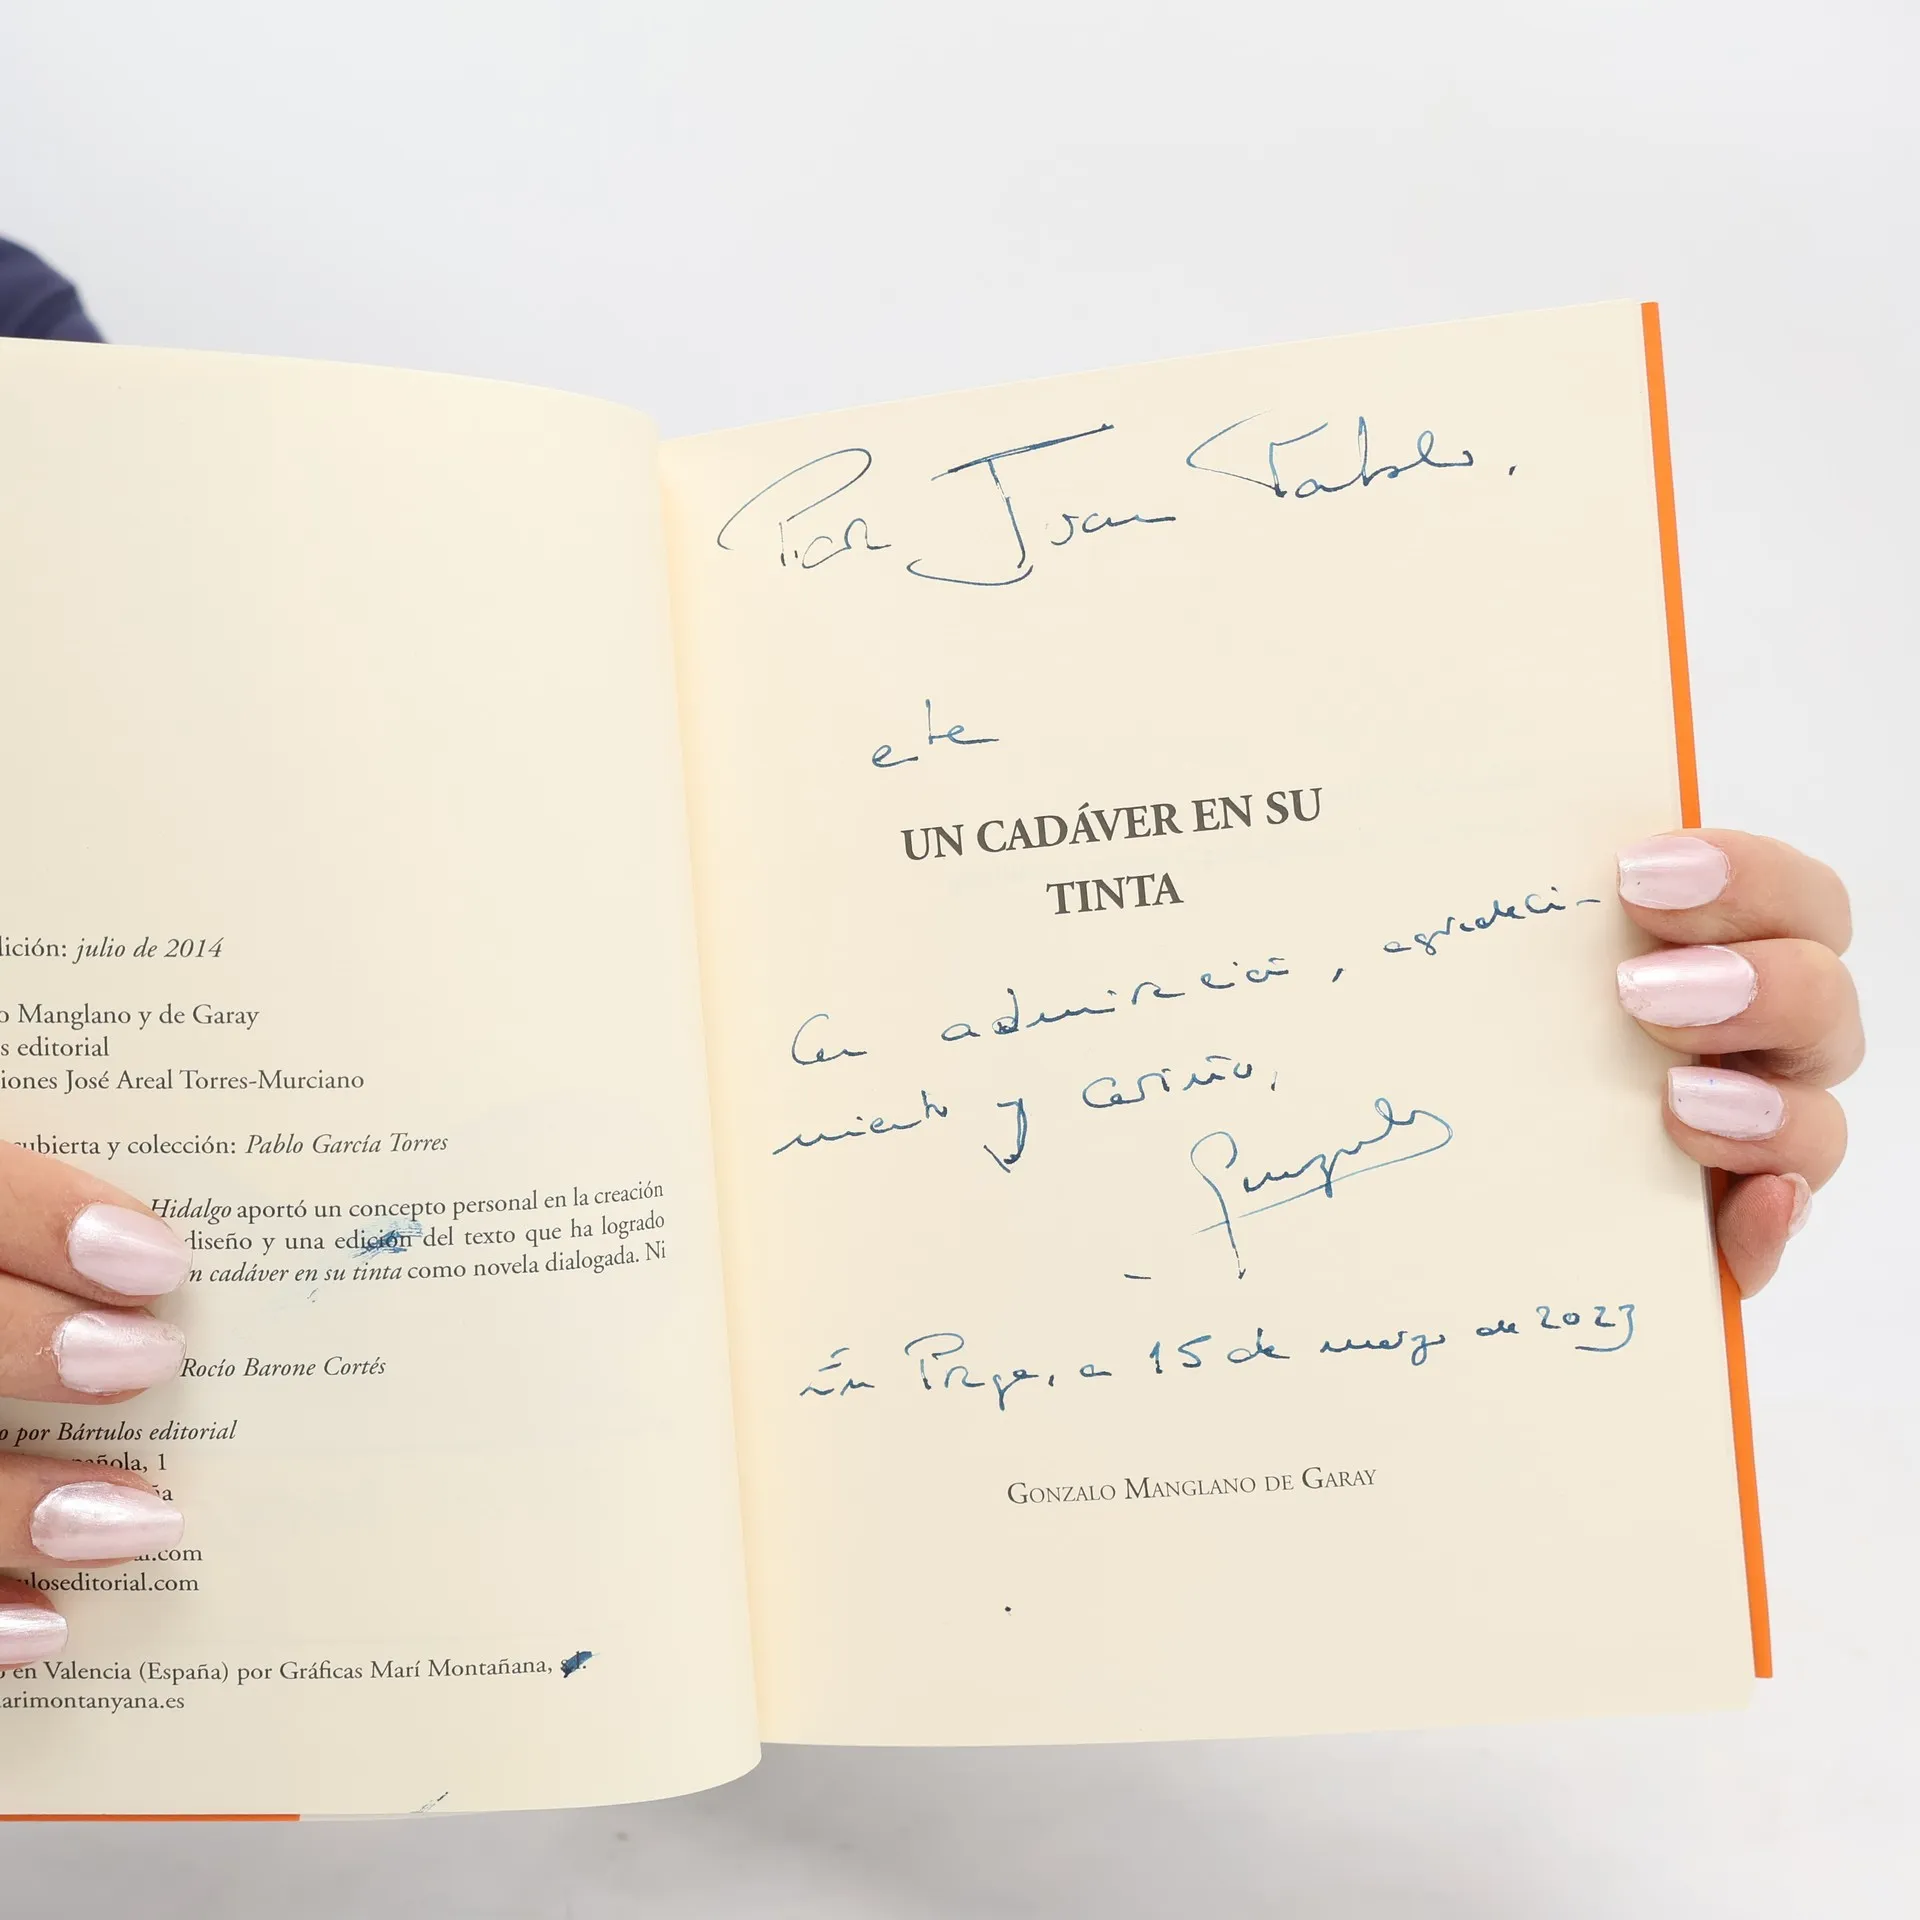 dición: julio de 2014
o Manglano y de Garay
s editorial
iones José Areal Torres-Murciano
cubierta y colección: Pablo García Torres
Hidalgo aportó un concepto personal en la creación
diseño y una edición del texto que ha logrado
n cadáver en su tinta como novela dialogada. Ni
Rocío Barone Cortés
o por Bártulos editorial
añola, 1
ña
al.com
uloseditorial.com
o en Valencia (España) por Gráficas Marí Montañana, s.l.
arimontanyana.es
Para Juan Pablo.
este
UN CADÁVER EN SU
TINTA
Con admiración, agradeci-
miento y cariño,
Gonzalo
En Praga, a 15 de marzo de 2023
GONZALO MANGLANO DE GARAY